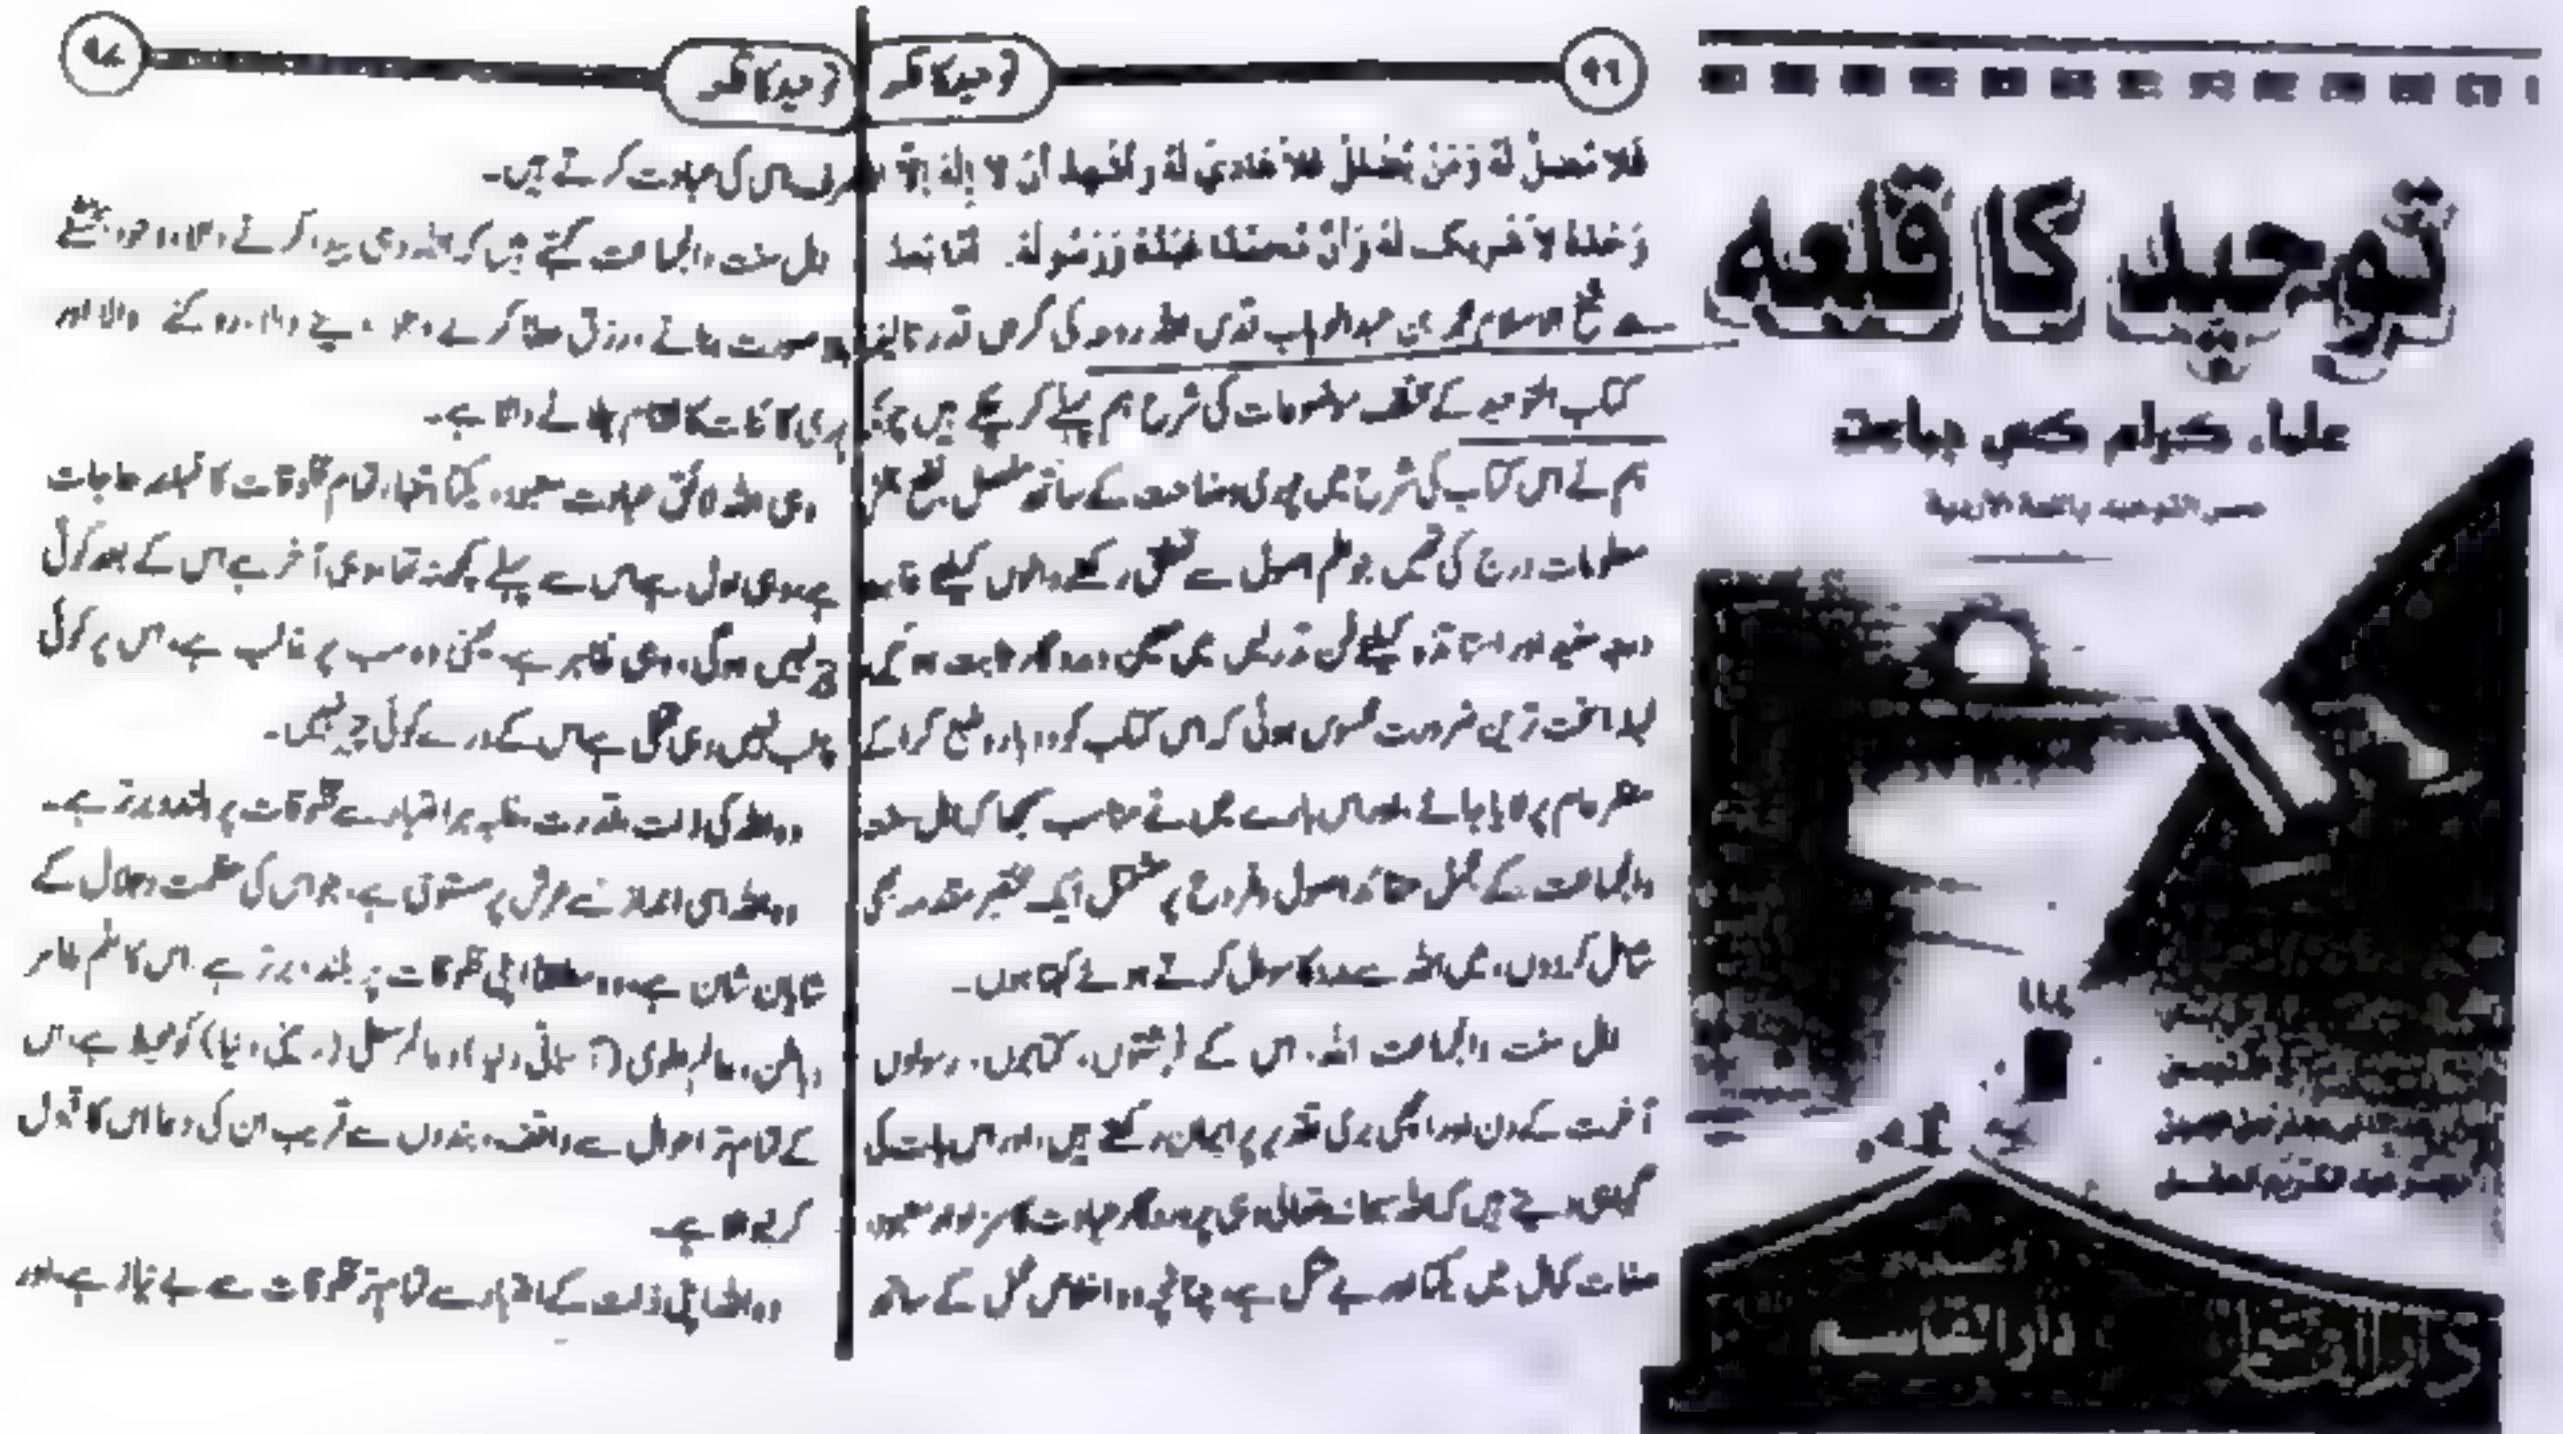 توحید کا قلعہ
علماء کرام کی جماعت
حصن التوحيد باللغة الأردية
دار القاسم
۹۶
توحید کا قلعہ
فَلا مُضِلَّ لَهُ وَمَنْ يُضْلِلْ فَلاَ هَادِيَ لَهُ وأشهد أنْ لا إِلهَ إِلَّا
وَحْدَهُ لاَ شَرِيكَ لَهُ وَأَنَّ مُحَمَّدًا عَبْدُهُ وَرَسُولُهُ. أَمَّا بَعْدُ
شیخ الاسلام محمد بن عبدالوہاب قدس اللہ روحہ کی گراں قدر تالیف
کتاب التوحید کے مختلف موضوعات کی شرح ہم پہلے کر چکے ہیں
ہم نے اس کتاب کی شرح میں پوری وضاحت کے ساتھ مفصل نفع بخش
معلومات درج کی تھیں جو علم اصول سے تعلق رکھنے والوں کیلئے
اور اساتذہ کیلئے فن تدریس میں معین ومددگار ثابت
لہذا سخت ترین ضرورت محسوس ہوئی کہ اس کتاب کو دوبارہ طبع کرا کے
منظر عام پر لایا جائے، اور اس بارے میں نے مناسب سمجھا کہ اہل سنت
والجماعت کے مجمل عقائد اصول وفروع پر مشتمل ایک مختصر مقدمہ بھی
شامل کردوں، میں اللہ سے مدد کا سوال کرتے ہوئے کہتا ہوں۔
اہل سنت والجماعت اللہ، اس کے فرشتوں، کتابوں، رسولوں
آخرت کے دن اور اچھی بری تقدیر پر ایمان رکھتے ہیں، اور اس بات کی
گواہی دیتے ہیں کہ اللہ سبحانہ وتعالیٰ ہی پروردگار عبادت کا سزاوار معبود
صفات کمال میں یکتا اور بے مثل ہے، چنانچہ وہ اخلاص عمل کے ساتھ
۹۷
توحید کا قلعہ
صرف اس کی عبادت کرتے ہیں۔
اہل سنت والجماعت کہتے ہیں کہ اللہ وہی پیدا کرنے والا،
صورت بنانے، رزق عطا کرنے والا، دینے والا، روکنے والا اور
پوری کائنات کا نظام چلانے والا ہے۔
وہی اللہ لائق عبادت معبود، یکتا وتنہا، تمام مخلوقات کا قبلہ حاجات
ہے، وہی اول ہے اس سے پہلے کچھ نہ تھا، وہی آخر ہے اس کے بعد کوئی
چیز نہیں ہوگی، وہی ظاہر ہے، یعنی وہ سب پر غالب ہے، اس پر کوئی
غالب نہیں، وہی باطن ہے اس کے ورے کوئی چیز نہیں۔
وہ اللہ کی ذات، قدرت، غلبہ ہر اعتبار سے مخلوقات پر بلند وبرتر ہے۔
وہ اللہ اسی انداز سے عرش پر مستوی ہے، جو اس کی عظمت وجلال کے
شایان شان ہے، وہ مطلقا اپنی مخلوقات پر بلند وبرتر ہے، اس کا علم ظاہر
وباطن، عالم علوی (آسمانی دنیا) وعالم سفلی (زمینی دنیا) کو محیط ہے، اس
کے تمام تر احوال سے واقف، بندوں سے قریب ان کی دعاؤں کا قبول
کرنے والا ہے۔
وہ اللہ اپنی ذات کے اعتبار سے تمام تر مخلوقات سے بے نیاز ہے، اور